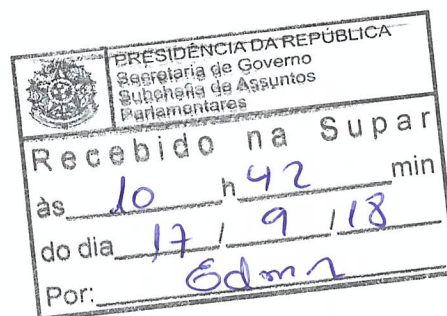 PRESIDÊNCIA DA REPÚBLICA
Secretaria de Governo
Subchefia de Assuntos
Parlamentares
Recebido na Supar
às 10 h 42 min
do dia 17 / 9 / 18
Por: